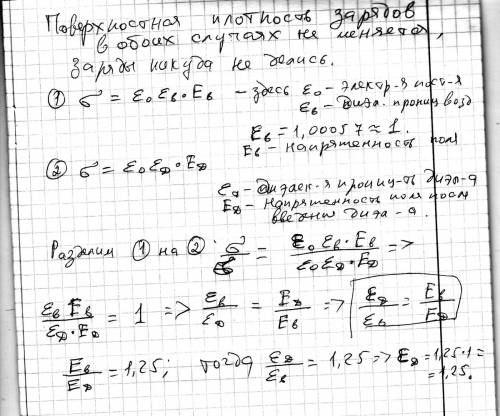 Поверхностная плотность зарядов
в обоих случаях не меняется,
заряды никуда не делись.
① σ = ε₀ εв · Eв – здесь ε₀ – электр-я пост-я
εв – диэл. прониц возд
εв = 1,00057 ≈ 1.
Eв – напряженность поля
② σ = ε₀ εд · Eд
εд – диэлек-я прониц-ть диэл-а
Eд – напряженность поля после
введения диэл-а.
Разделим ① на ② σ/σ = ε₀ εв · Eв / ε₀ εд · Eд =>
εв Eв / εд · Eд = 1 => εв / εд = Eд / Eв => εд / εв = Eв / Eд
Eв / Eд = 1,25; тогда εд / εв = 1,25 => εд = 1,25 · 1 =
= 1,25.